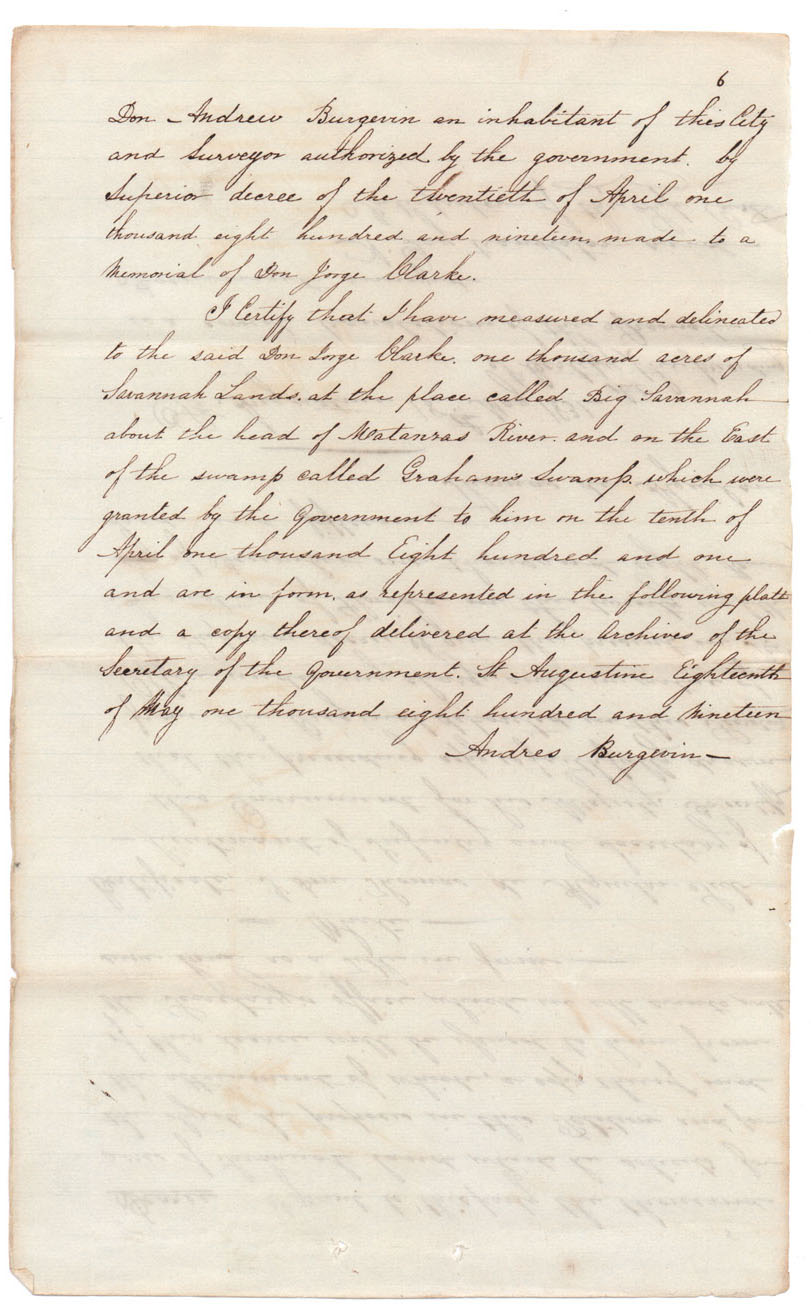 6
Don - Andrew Burgevin an inhabitant of this City
and Surveyor authorized by the government. by
Superior decree of the twentieth of April one
thousand eight hundred and nineteen, made to a
Memorial of Don Jorge Clarke.
I Certify that I have measured and delineated
to the said Don Jorge Clarke. one thousand acres of
Savannah Lands. at the place called Big Savannah
about the head of Matanzas River. and on the East
of the swamp called Grahams Swamp. which were
granted by the Government to him on the tenth of
April one thousand Eight hundred and one
and are in form. as represented in the following platt
and a copy thereof delivered at the Archives of the
Secretary of the Government. St Augustine Eighteenth
of May one thousand eight hundred and Nineteen
Andres Burgevin -